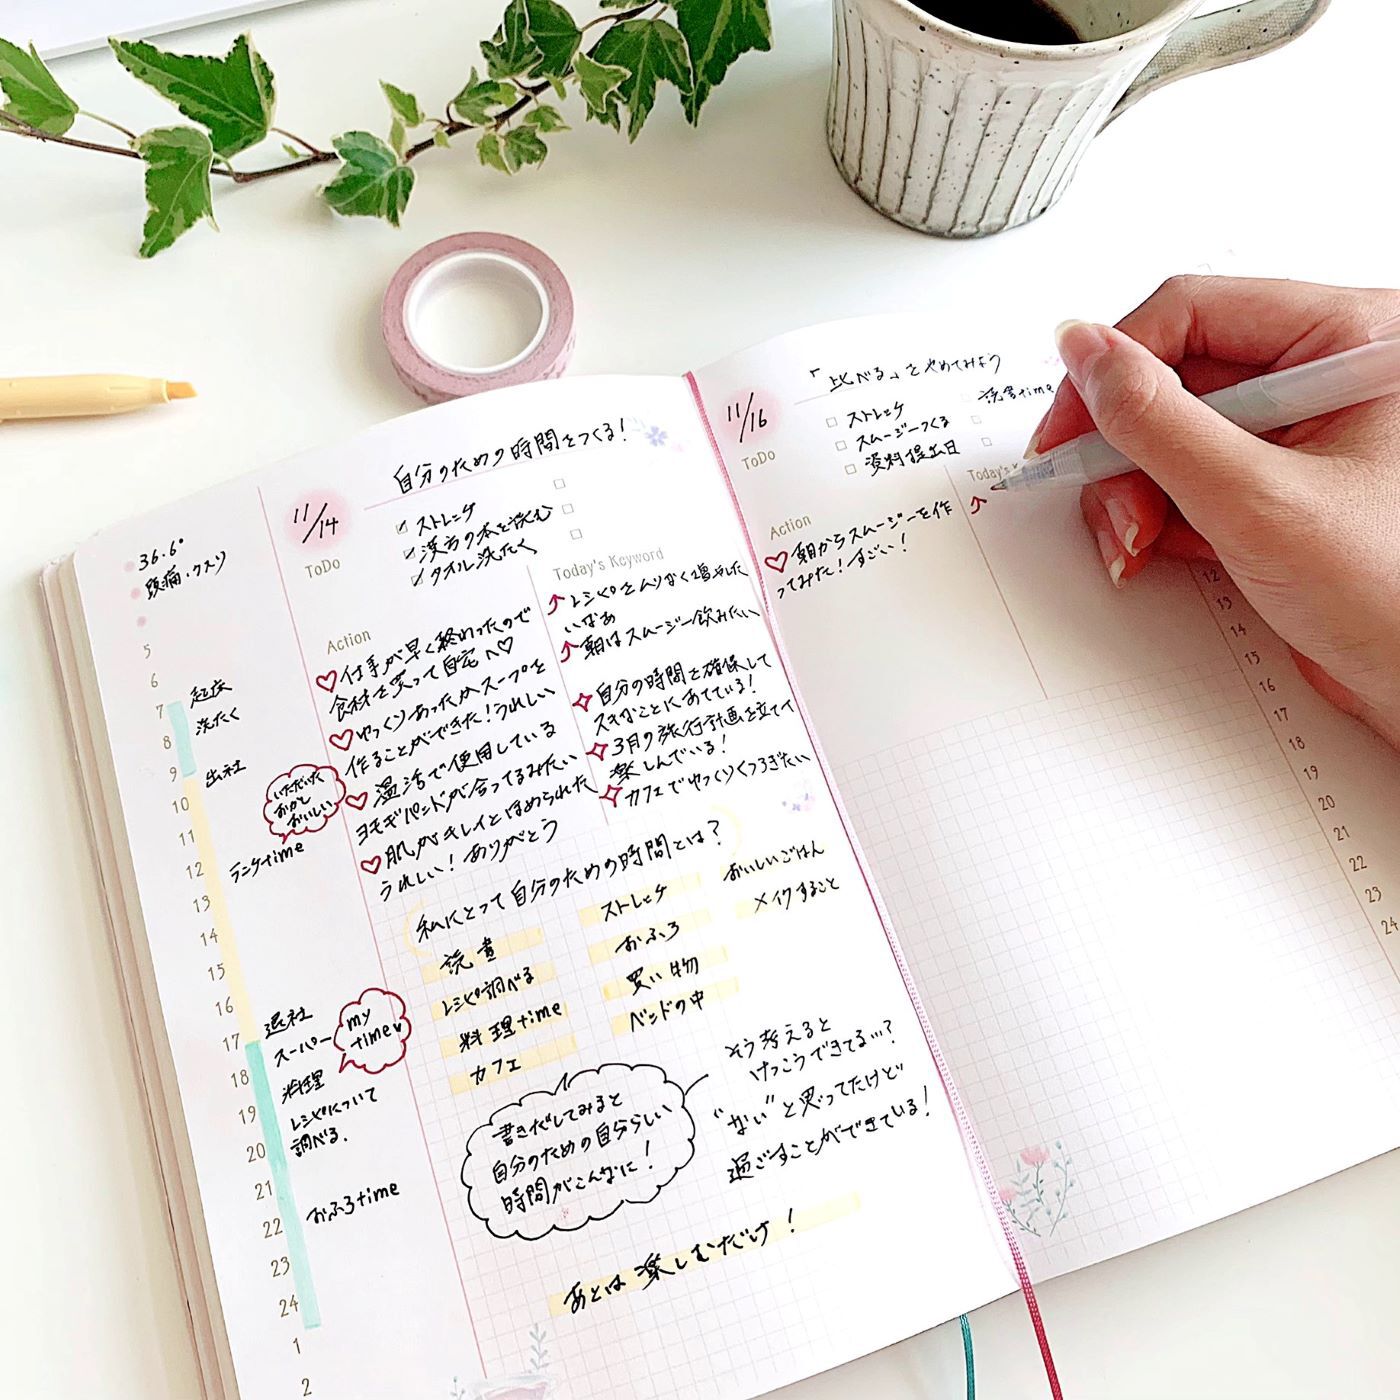 自分のための時間をつくる!
11/14
ToDo
ストレッチ
漢方の本を読む
タオル洗たく
36.6°
頭痛・クスリ
5
6
7
8
9
10
11
12
13
14
15
16
17
18
19
20
21
22
23
24
1
2
起床
洗たく
出社
いただいた
おかし
おいしい
ランチtime
退社
スーパー
my
time
料理
レシピについて
調べる.
おふろtime
Action
♡仕事が早く終わったので
食材を買って自宅へ♡
♡ゆっくりあったかスープを
作ることができた!うれしい
♡温活で使用している
ヨモギバンドが合ってるみたい
♡肌がキレイとほめられた
うれしい!ありがとう
Today's Keyword
↑レシピをムリなく増やした
いなぁ
↑朝はスムージー飲みたい
自分の時間を確保して
スキなことにあてている!
3月の旅行計画を立てて
楽しんでいる!
カフェでゆっくりくつろぎたい
私にとって自分のための時間とは?
読書
レシピ調べる
料理time
カフェ
ストレッチ
おふろ
買い物
ベッドの中
おいしいごはん
メイクすること
書きだしてみると
自分のための自分らしい
時間がこんなに!
そう考えると
けっこうできてる…?
“ない”と思ってたけど
過ごすことができている!
あとは楽しむだけ!
「比べる」をやめてみよう
11/16
ToDo
ストレッチ
スムージーつくる
資料提出日
読書time
Action
♡朝からスムージーを作
ってみた!すごい!
Today's
↑
12
13
14
15
16
17
18
19
20
21
22
23
24